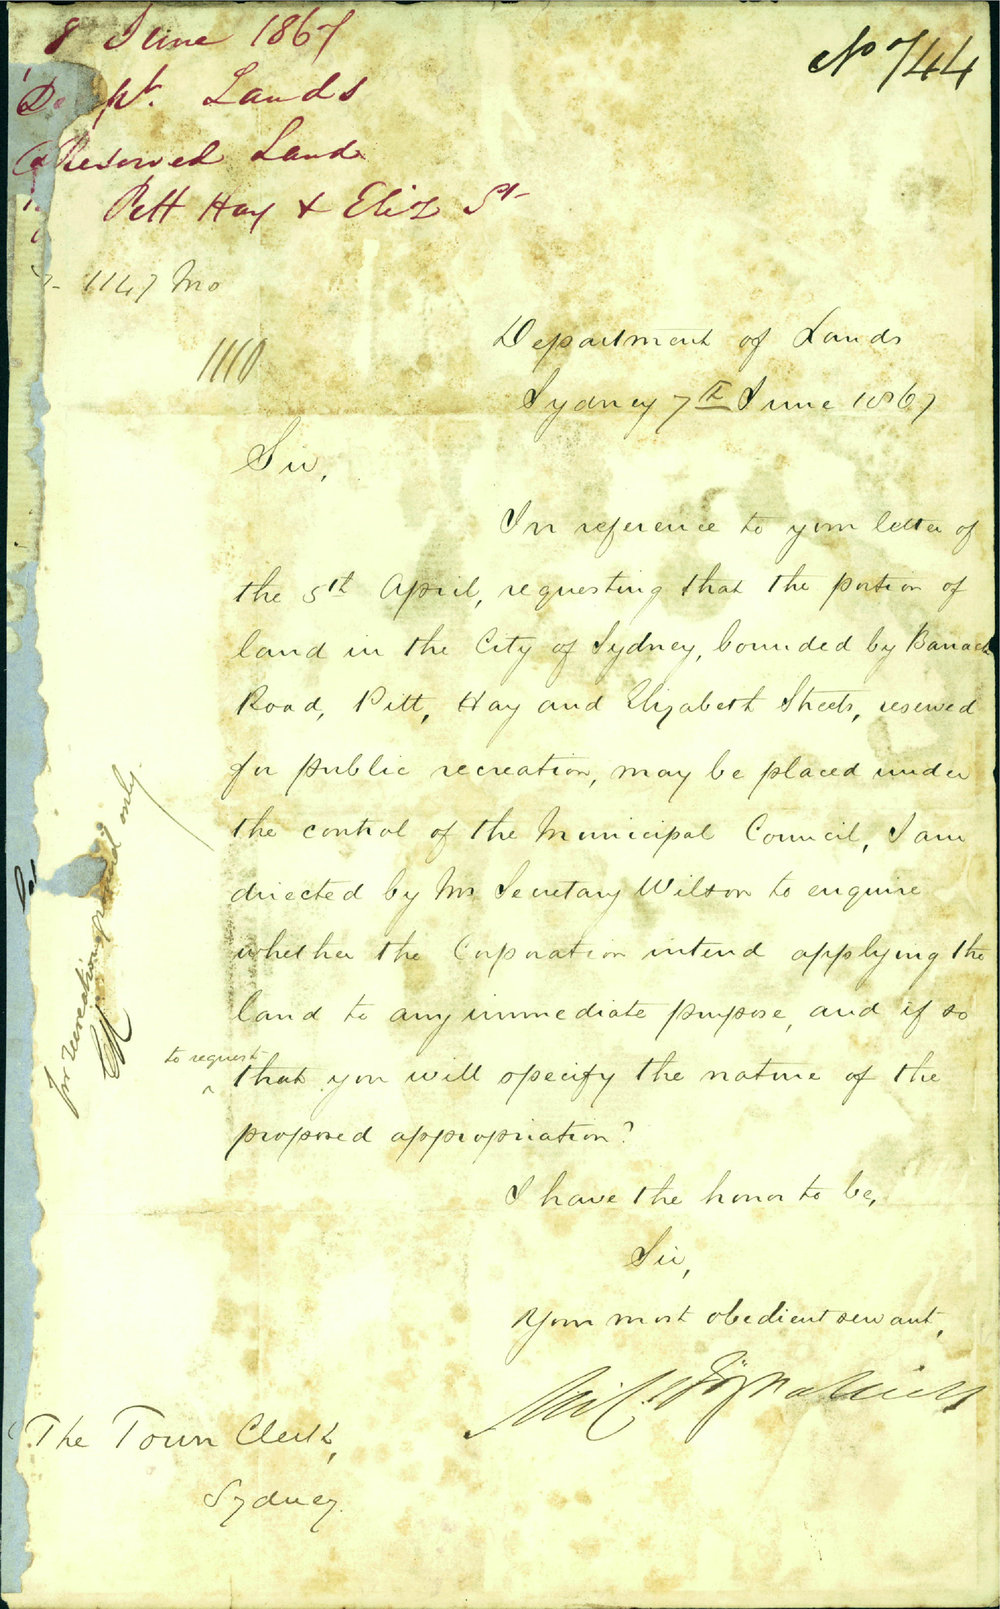 8 June 1867
No 744
Dept. Lands
Reserved Land
Pitt Hay & Eliz St
1147 Mo
Department of Lands
Sydney 7th June 1867
Sir,
In reference to your letter of
the 5th April, requesting that the portion of
land in the City of Sydney, bounded by Barrack
Road, Pitt, Hay and Elizabeth Streets, reserved
for public recreation, may be placed under
the control of the Municipal Council, I am
directed by Mr. Secretary Wilson to enquire
whether the Corporation intend applying the
land to any immediate purpose, and if so
to request
that you will specify the nature of the
proposed appropriation?
I have the honor to be,
Sir,
Your most obedient servant,
The Town Clerk,
Sydney.
for recreation ground only.